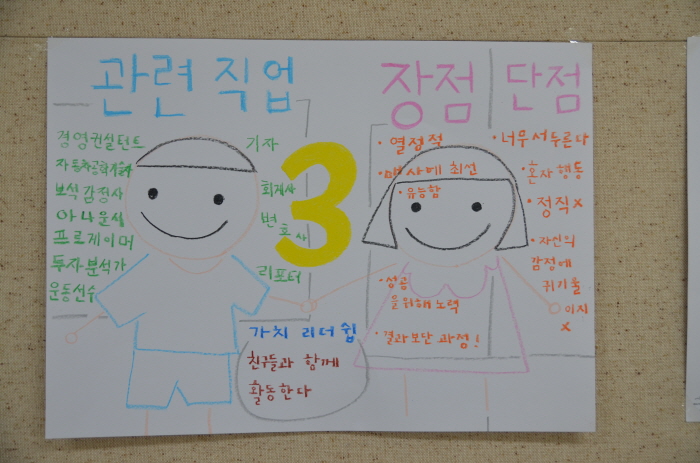 관련 직업
경영컨설턴트
자동차공학기술자
보석 감정사
아나운서
프로게이머
투자분석가
운동선수
기자
회계사
변호사
리포터
3
장점
· 열정적
· 매사에 최선
· 유능함
· 성공
을 위해 노력
· 결과보단 과정!
단점
· 너무 서두른다
· 혼자 행동
· 정직 X
· 자신의
감정에
귀기울
이지
X
가치 리더쉽
친구들과 함께
활동한다